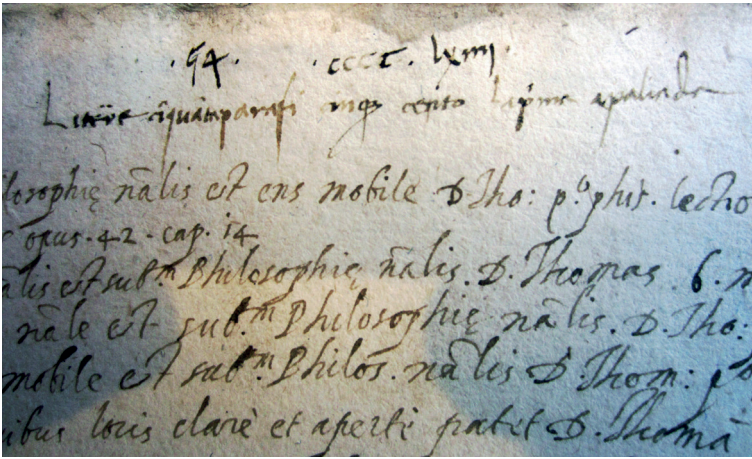 .94. .cccc. lxiiii.
cento
losophię nãlis est ens mobile D. Tho: p.º phis. lectio
opus. 42. cap. 14
ãlis est sub.m Philosophię nãlis. D. Thomas. 6.
nãle est sub.m Philosophię nãlis. D. Tho.
mobile est sub.m Philos. nãlis D. Thom:
ibus locis clarè et apertè patet D. Thomã